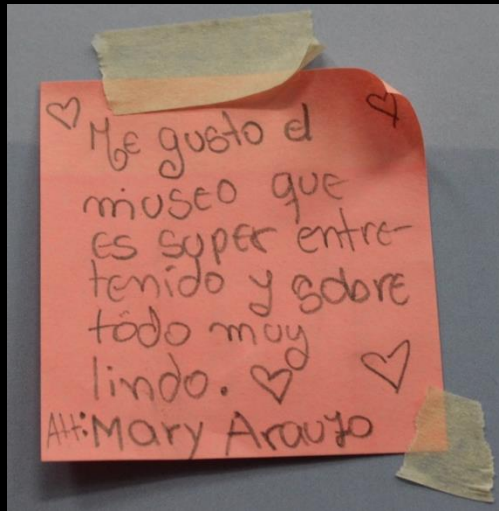 Me gusto el
museo que
es super entre-
tenido y sobre
todo muy
lindo.
Att: Mary Araujo